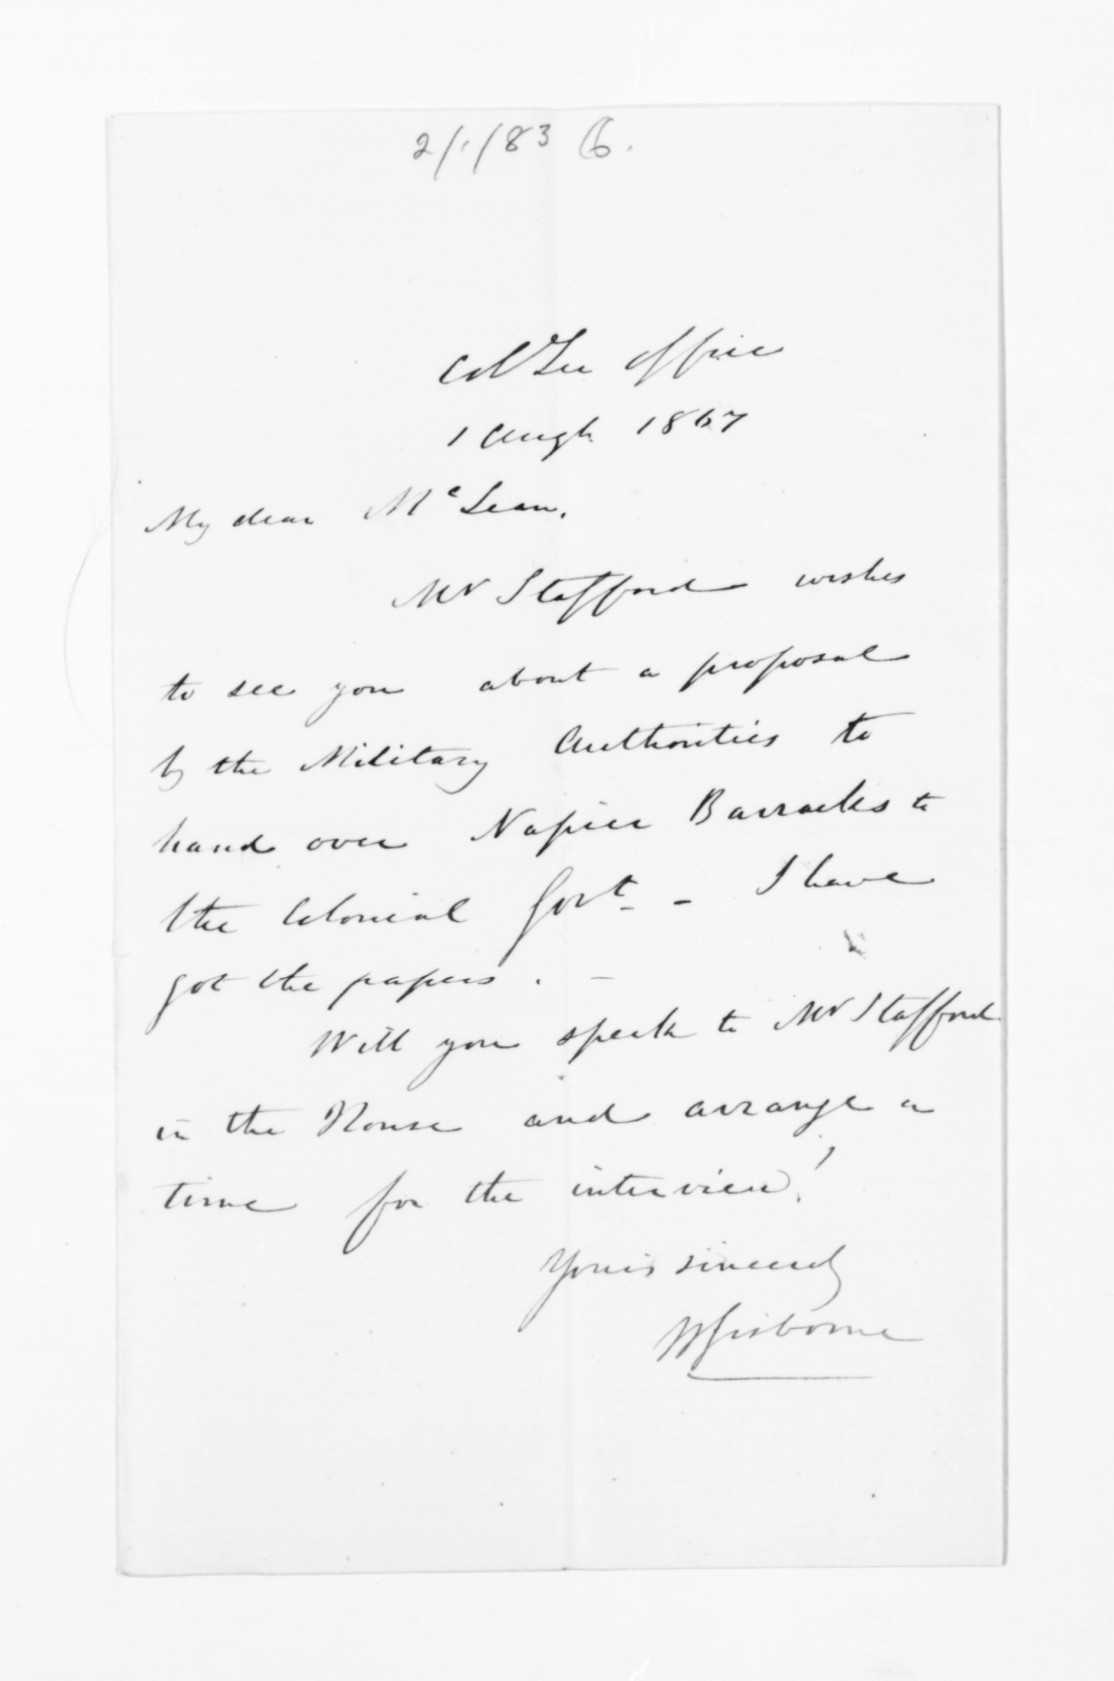 2/1/83 6.
Col Sec Office
1 Augt 1867
My dear McLean,
Mr Stafford wishes
to see you about a proposal
by the Military Authorities to
hand over Napier Barracks to
the Colonial Govt - I have
got the papers. -
Will you speak to Mr Stafford
in the House and arrange a
time for the interview?
Yours sincerely
W Gisborne